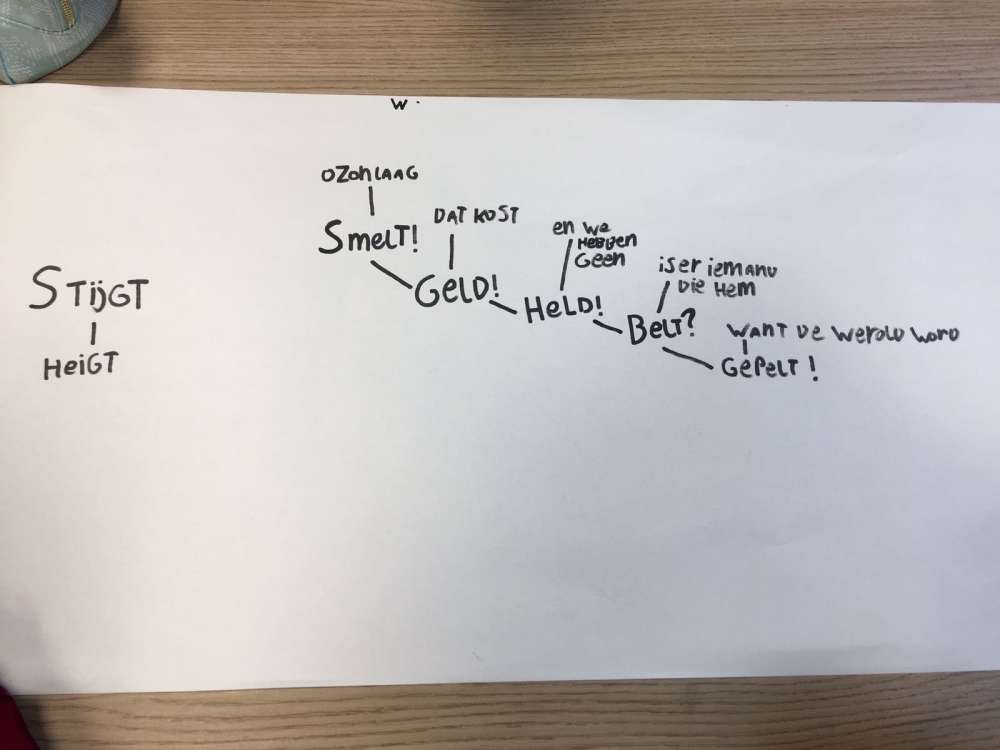 W.
OZOnLAAG
SmeLT!
DAT KOST
GeLD!
en we
HEBBEN
Geen
HeLD!
is er iemanD
Die Hem
BeLT?
WANT De WeRelD WORD
GePeLT!
STijGT
HeiGT